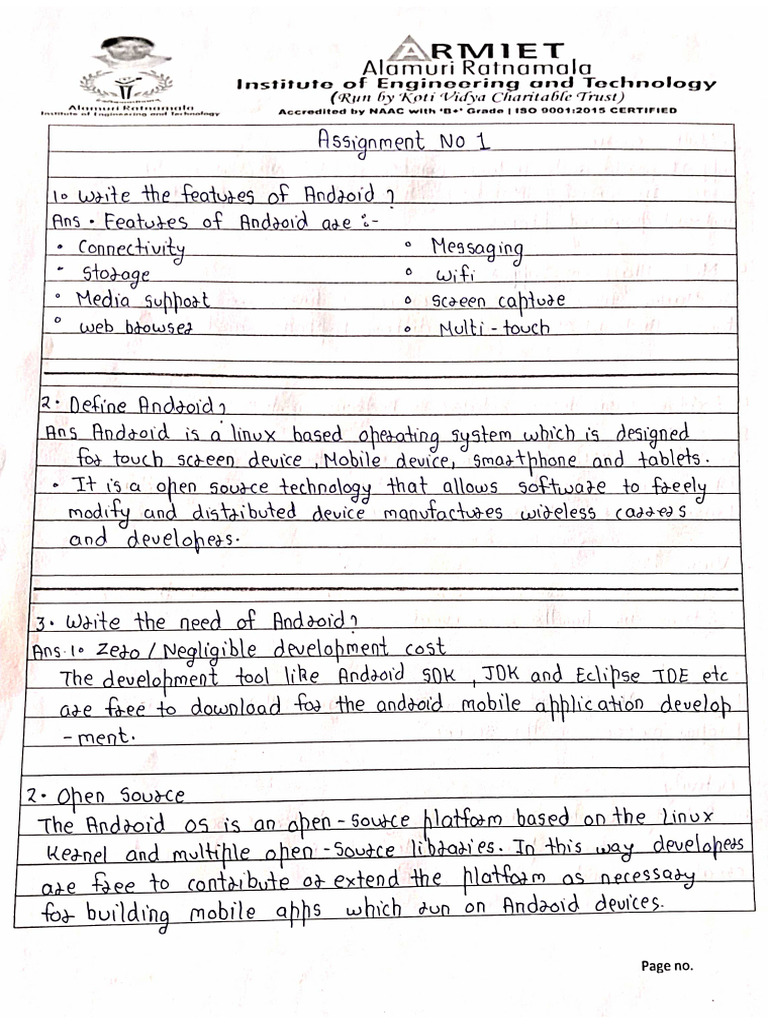 ARMIET
Alamuri Ratnamala
Institute of Engineering and Technology
(Run by Koti Vidya Charitable Trust)
Accredited by NAAC with 'B+' Grade | ISO 9001:2015 CERTIFIED
Alamuri Ratnamala
Institute of Engineering and Technology
Assignment No 1
1. Write the features of Android?
Ans . Features of Android are :-
• Connectivity • Messaging
• Storage • Wifi
• Media support • screen capture
• web browser • Multi-touch
2. Define Android?
Ans Android is a linux based operating system which is designed
for touch screen device, Mobile device, smartphone and tablets.
• It is a open source technology that allows software to freely
modify and distributed device manufactures wireless carrers
and developers.
3. Write the need of Android?
Ans. 1. Zero / Negligible development cost
The development tool like Android SDK, JDK and Eclipse IDE etc
are free to download for the android mobile application develop
-ment.
2. Open Source
The Android OS is an open-source platform based on the Linux
Kernel and multiple open-source libraries. In this way developers
are free to contribute or extend the platform as necessary
for building mobile apps which run on Android devices.
Page no.